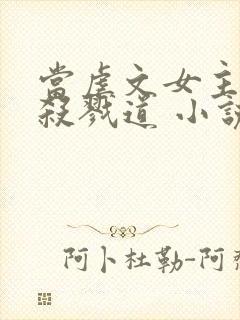 當虐文女主
殺戮道 小說
阿卜杜勒-阿